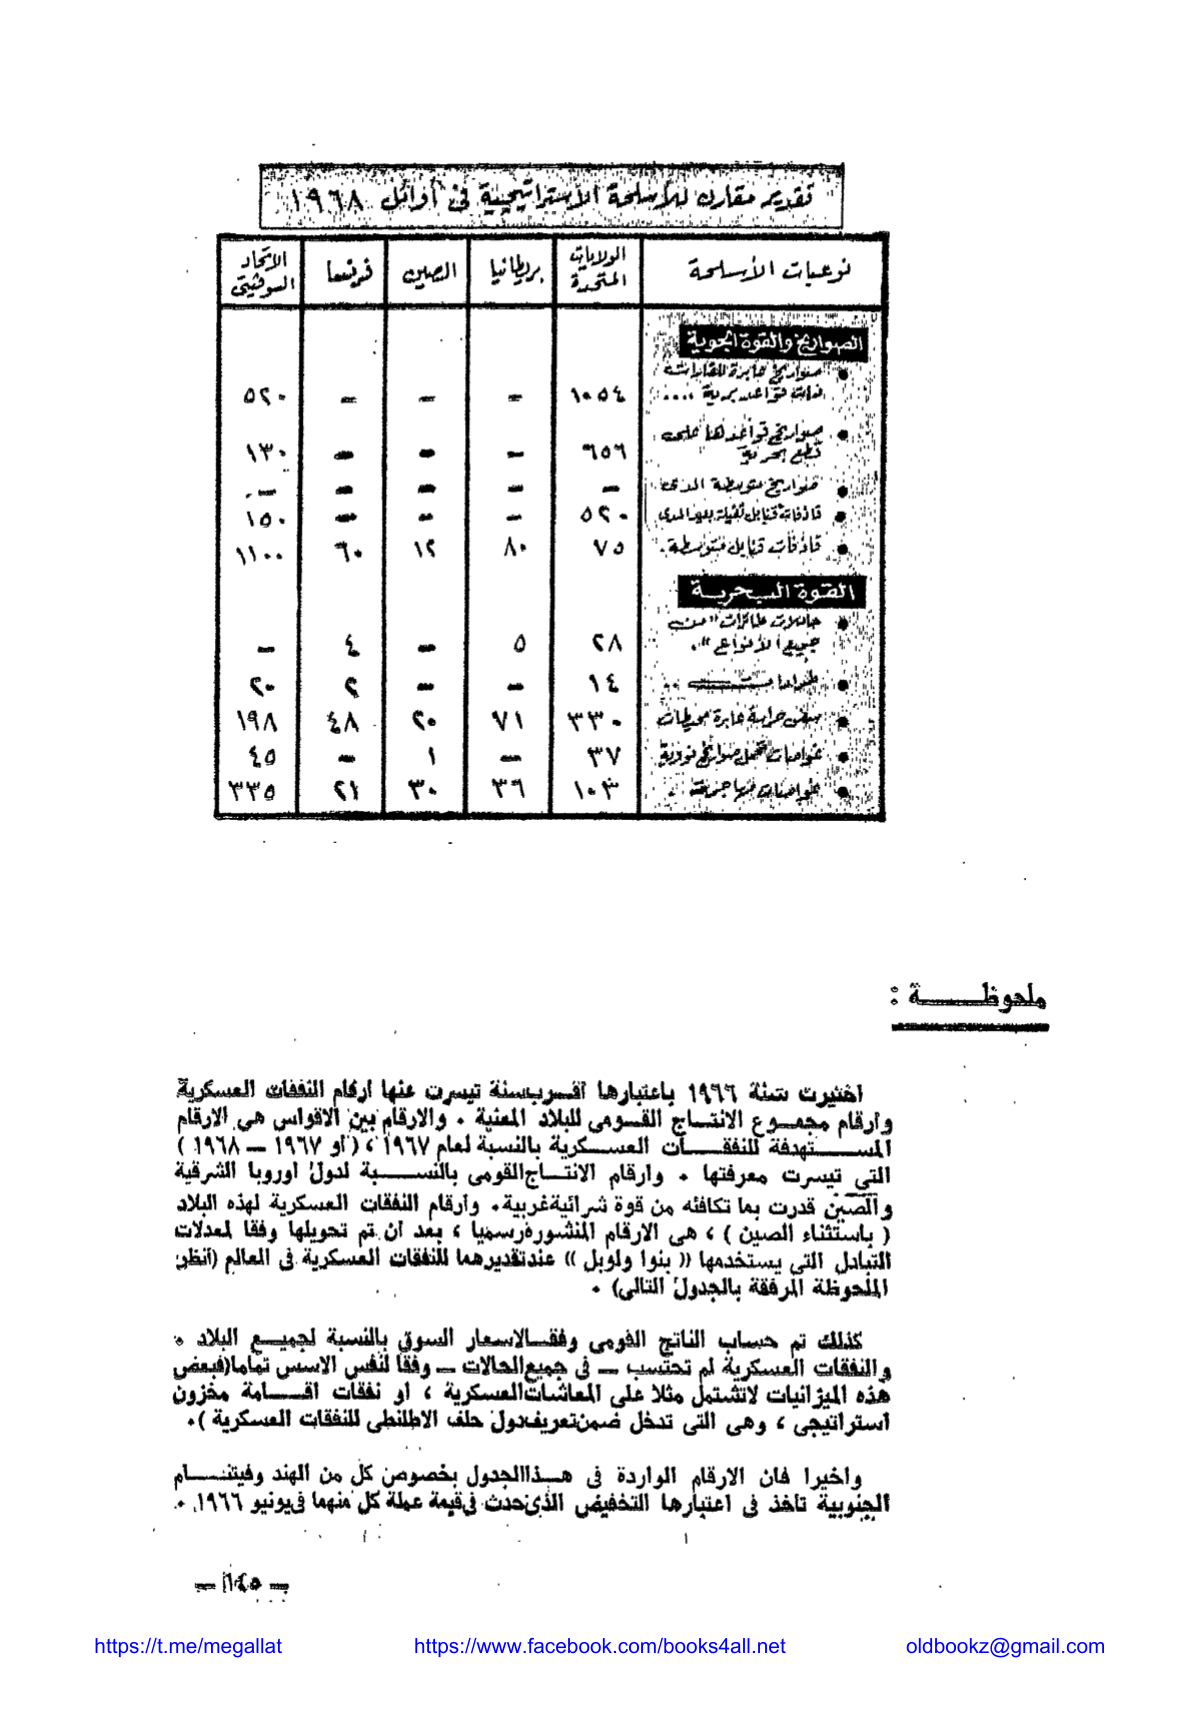 تقديم مقارن للأسلحة الاستراتيجية فى أوائل ١٩٦٨
نوعيات الأسلحة | الولايات المتحدة | بريطانيا | الصين | فرنسا | الاتحاد السوفيتى
الصواريخ والقوة الجوية
• صواريخ عابرة للقارات
ذات قواعد برية .... | ١٠٥٤ | — | — | — | ٥٢٠
• صواريخ قواعدها على
قطع بحرية | ٦٥٦ | — | — | — | ١٣٠
• صواريخ متوسطة المدى | — | — | — | — | —
• قاذفات قنابل ثقيلة بعيد المدى | ٥٢٠ | — | — | — | ١٥٠
• قاذفات قنابل متوسطة . | ٧٥ | ٨٠ | ١٢ | ٦٠ | ١١٠٠
القوة البحرية
• حاملات طائرات «من
جميع الأنواع» . | ٢٨ | ٥ | — | ٤ | —
• طرادات .. | ١٤ | — | — | ٢ | ٢٠
• سفن حراسة عابرة محيطات | ٣٣٠ | ٧١ | ٢٠ | ٤٨ | ١٩٨
• غواصات تحمل صواريخ نووية | ٣٧ | — | ١ | — | ٤٥
• غواصات مهاجمة . | ١٠٣ | ٣٦ | ٣٠ | ٢١ | ٣٣٥
ملحوظــــة :
اختيرت سنة ١٩٦٦ باعتبارها أقرب سنة تيسرت عنها أرقام النفقات العسكرية
وأرقام مجموع الانتاج القومى للبلاد المعنية . والارقام بين الاقواس هى الارقام
المستهدفة للنفقات العسكرية بالنسبة لعام ١٩٦٧ ، ( أو ١٩٦٧ — ١٩٦٨ )
التي تيسرت معرفتها . وارقام الانتاج القومى بالنسبة لدول اوروبا الشرقية
والصين قدرت بما تكافئه من قوة شرائية غربية . وأرقام النفقات العسكرية لهذه البلاد
( باستثناء الصين ) ، هى الارقام المنشورة رسميا ، بعد ان تم تحويلها وفقا لمعدلات
التبادل التى يستخدمها « بنوا ولوبل » عند تقديرهما للنفقات العسكرية فى العالم (انظر
الملحوظة المرفقة بالجدول التالى) .
كذلك تم حساب الناتج القومى وفقا لاسعار السوق بالنسبة لجميع البلاد .
والنفقات العسكرية لم تحتسب — فى جميع الحالات — وفقا لنفس الاسس تماما(فبعض
هذه الميزانيات لاتشتمل مثلا على المعاشات العسكرية ، او نفقات اقامة مخزون
استراتيجى ، وهى التى تدخل ضمن تعريف دول حلف الاطلنطى للنفقات العسكرية ) .
واخيرا فان الارقام الواردة فى هذا الجدول بخصوص كل من الهند وفيتنام
الجنوبية تأخذ فى اعتبارها التخفيض الذى حدث فى قيمة عملة كل منهما فى يونيو ١٩٦٦ .
— ١٤٥ —
https://t.me/megallat https://www.facebook.com/books4all.net oldbookz@gmail.com